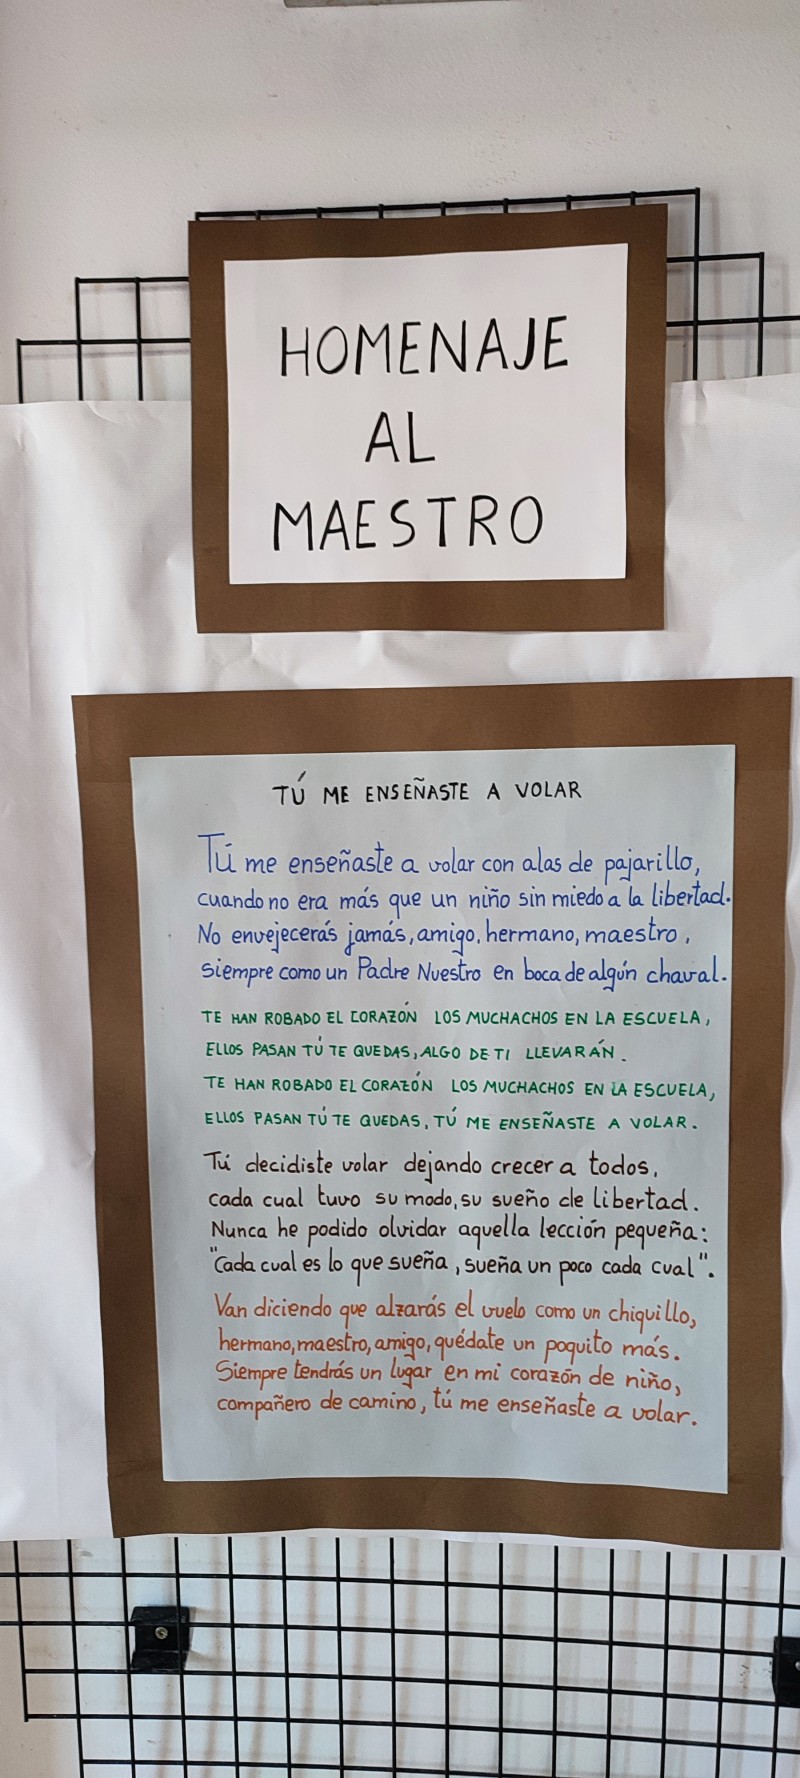 HOMENAJE
AL
MAESTRO
TÚ ME ENSEÑASTE A VOLAR
Tú me enseñaste a volar con alas de pajarillo,
cuando no era más que un niño sin miedo a la libertad.
No envejecerás jamás, amigo, hermano, maestro,
siempre como un Padre Nuestro en boca de algún chaval.
TE HAN ROBADO EL CORAZÓN LOS MUCHACHOS EN LA ESCUELA,
ELLOS PASAN TÚ TE QUEDAS, ALGO DE TI LLEVARÁN.
TE HAN ROBADO EL CORAZÓN LOS MUCHACHOS EN LA ESCUELA,
ELLOS PASAN TÚ TE QUEDAS, TÚ ME ENSEÑASTE A VOLAR.
Tú decidiste volar dejando crecer a todos,
cada cual tuvo su modo, su sueño de libertad.
Nunca he podido olvidar aquella lección pequeña:
"Cada cual es lo que sueña, sueña un poco cada cual".
Van diciendo que alzarás el vuelo como un chiquillo,
hermano, maestro, amigo, quédate un poquito más.
Siempre tendrás un lugar en mi corazón de niño,
compañero de camino, tú me enseñaste a volar.